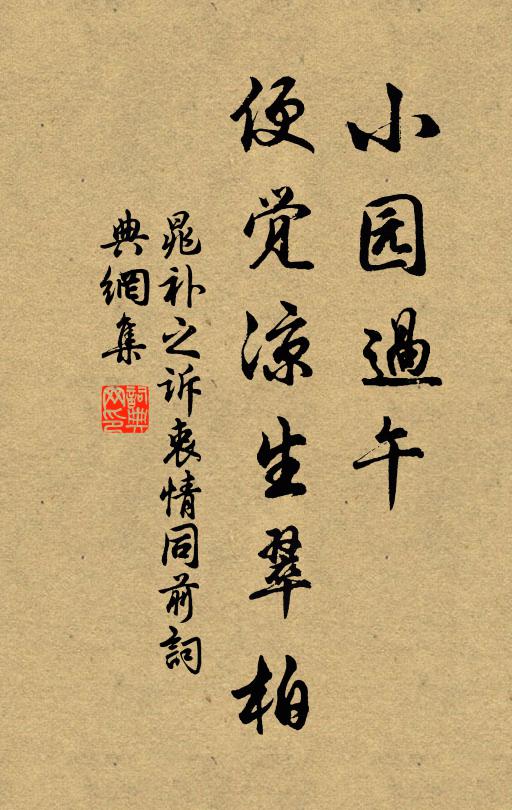 小园過午
便觉凉生翠柏
晁补之诉衷情同前詞
典網集
詞典
网印